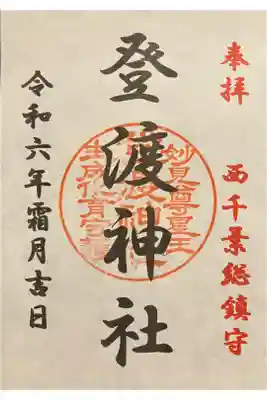 奉拝
西千葉総鎮守
登渡神社
妙見尊星王
令和六年霜月吉日